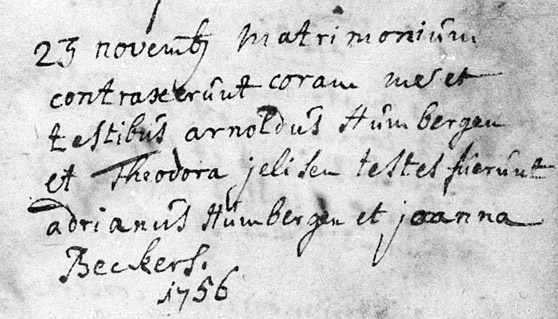 23 novemb matrimonium
contraxerunt coram me et
testibus arnoldus Humbergen
et Theodora jelisen testes fuerunt
adrianus Humbergen et joanna
Beckers.
1756